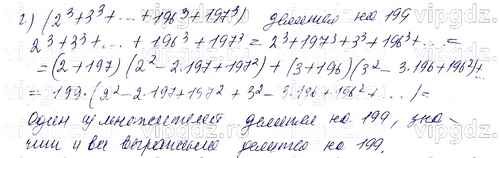 г) (2³+3³+...+196³+197³) делится на 199
2³+3³+...+196³+197³ = 2³+197³+3³+196³+... =
= (2+197)(2²-2·197+197²)+(3+196)(3²-3·196+196²)+...
= 199·(2²-2·197+197²+3²-3·196+196²+...)=
Один из множителей делится на 199, зна-
чит и все выражение делится на 199.